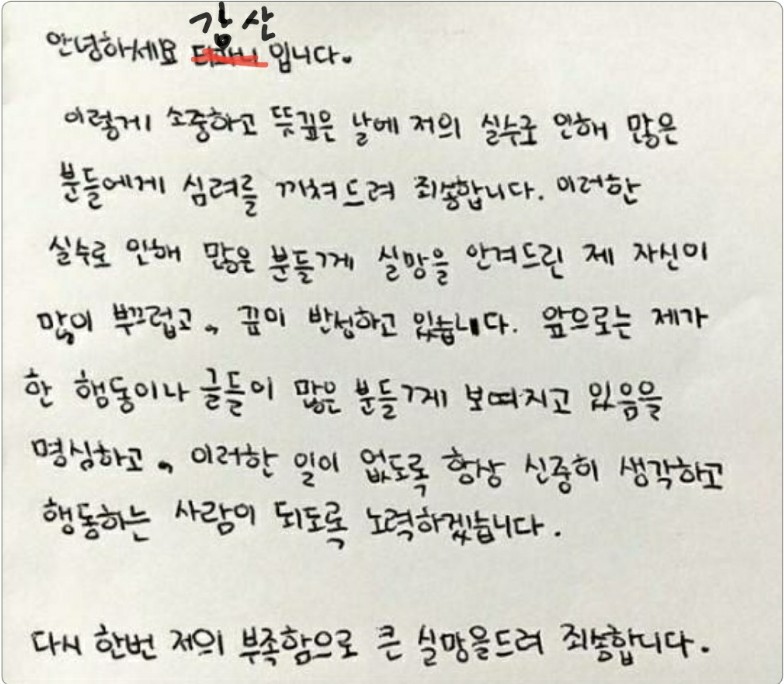 감산
안녕하세요 입니다.
이렇게 소중하고 뜻깊은 날에 저의 실수로 인해 많은
분들에게 심려를 끼쳐드려 죄송합니다. 이러한
실수로 인해 많은 분들께 실망을 안겨드린 제 자신이
많이 부끄럽고, 깊이 반성하고 있습니다. 앞으로는 제가
한 행동이나 글들이 많은 분들께 보여지고 있음을
명심하고, 이러한 일이 없도록 항상 신중히 생각하고
행동하는 사람이 되도록 노력하겠습니다.
다시 한번 저의 부족함으로 큰 실망을드려 죄송합니다.